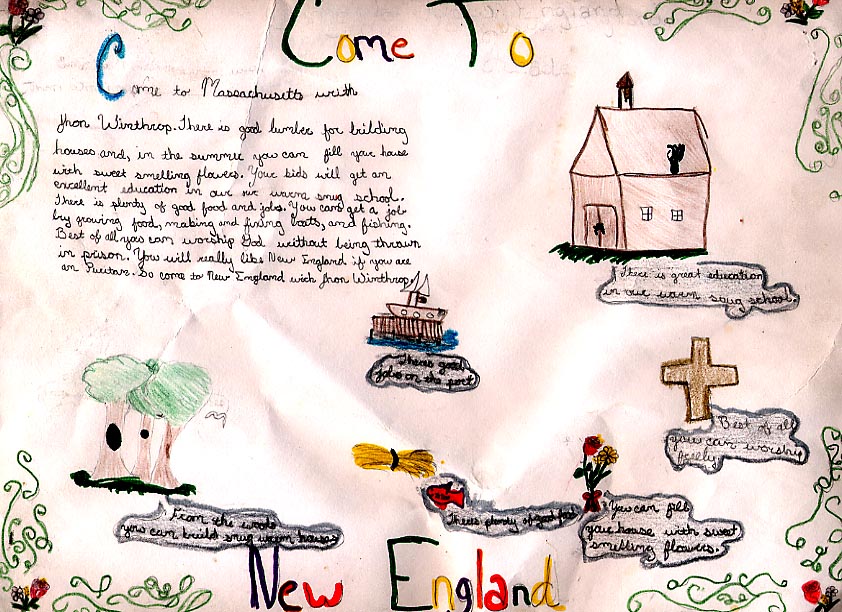 Come To
Come to Massachusetts with
Jhon Winthrop. There is good lumber for bilding
houses and, in the summer you can fill your house
with sweet smelling flowers. Your kids will get an
excellent education in our warm snug school.
There is plenty of good food and jobs. You can get a job
by growing food, making and fixing boats, and fishing.
Best of all you can worship God without being thrown
in prison. You will really like New England if you are
an Puritan. So come to New England with Jhon Winthrop
There is great education
in our warm snug school.
Theres good
jobs on the port
Best of all
you can worship
freely
From the woods
you can build snug warm houses
Theres plenty of good food
You can fill
your house with sweet
smelling flowers.
New England